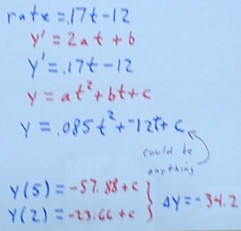 rate = .17t-12
y' = 2at+b
y' = .17t-12
y = at²+bt+c
y = .085t²+-12t+c
could be
anything
y(5) = -57.88+c
y(2) = -23.66+c
Δy = -34.2